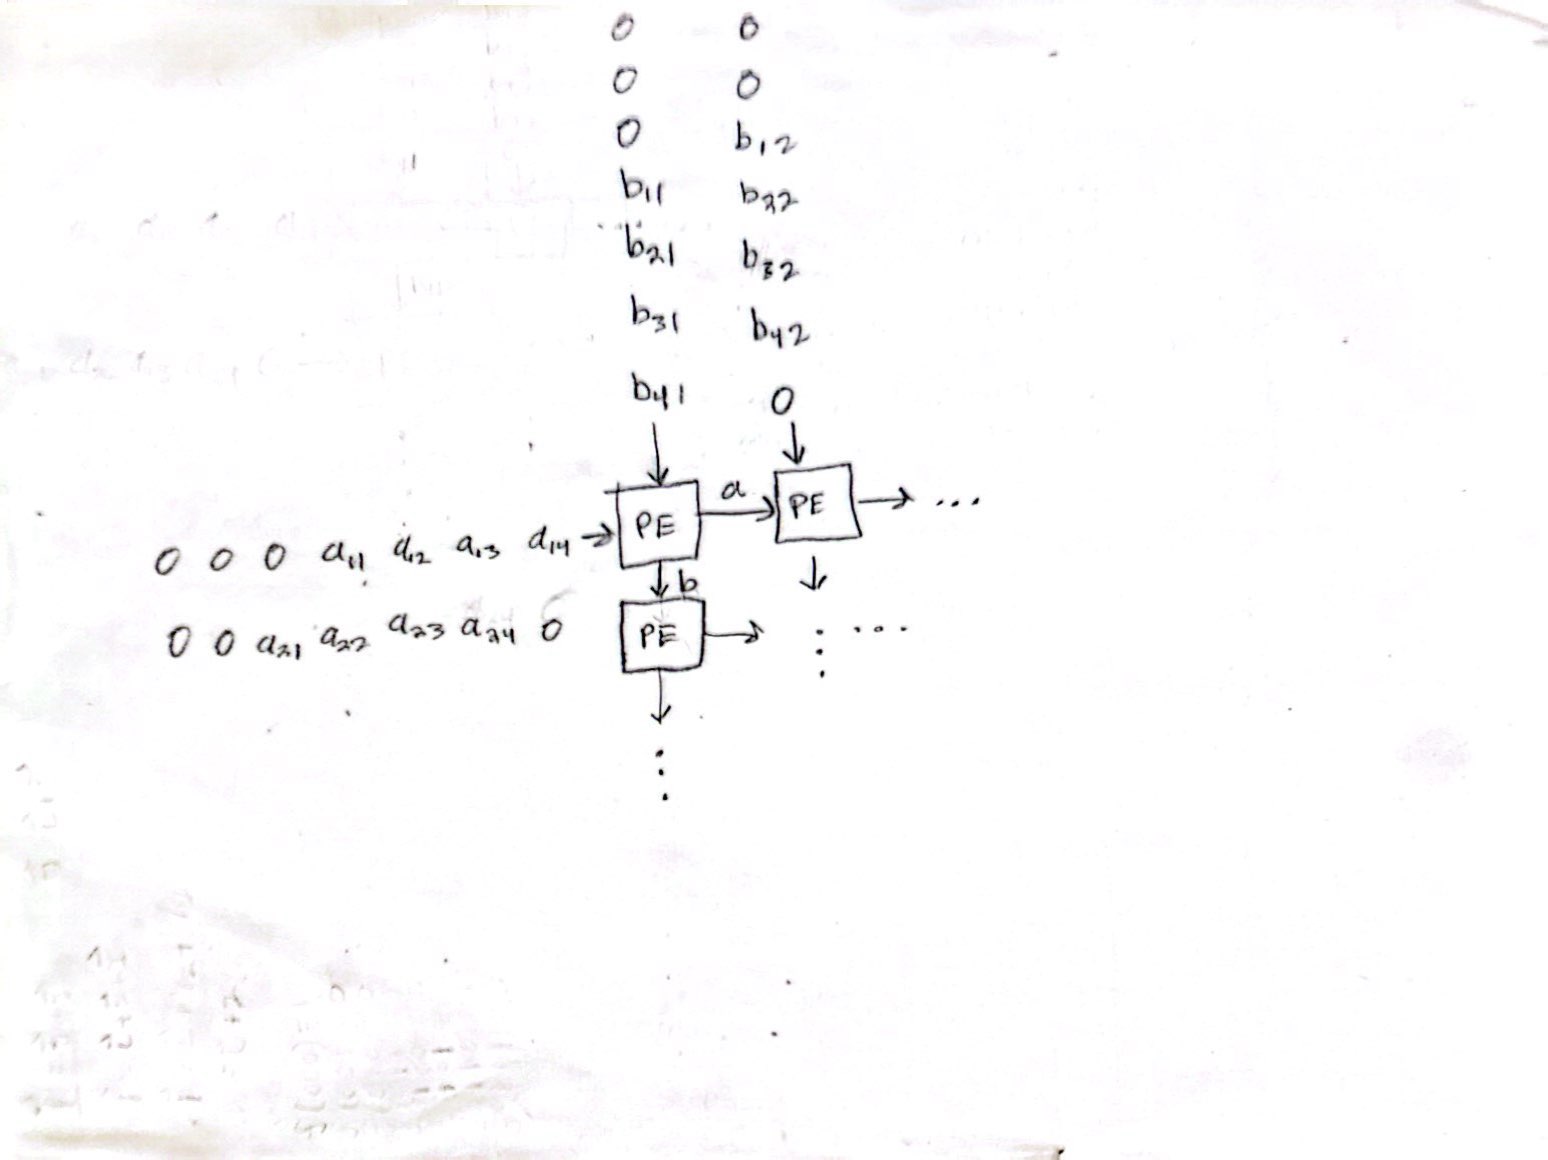 0 0
0 0
0 b12
b11 b22
b21 b32
b31 b42
b41 0
PE a PE ...
0 0 0 a11 a12 a13 a14
b
0 0 a21 a22 a23 a24 0 PE